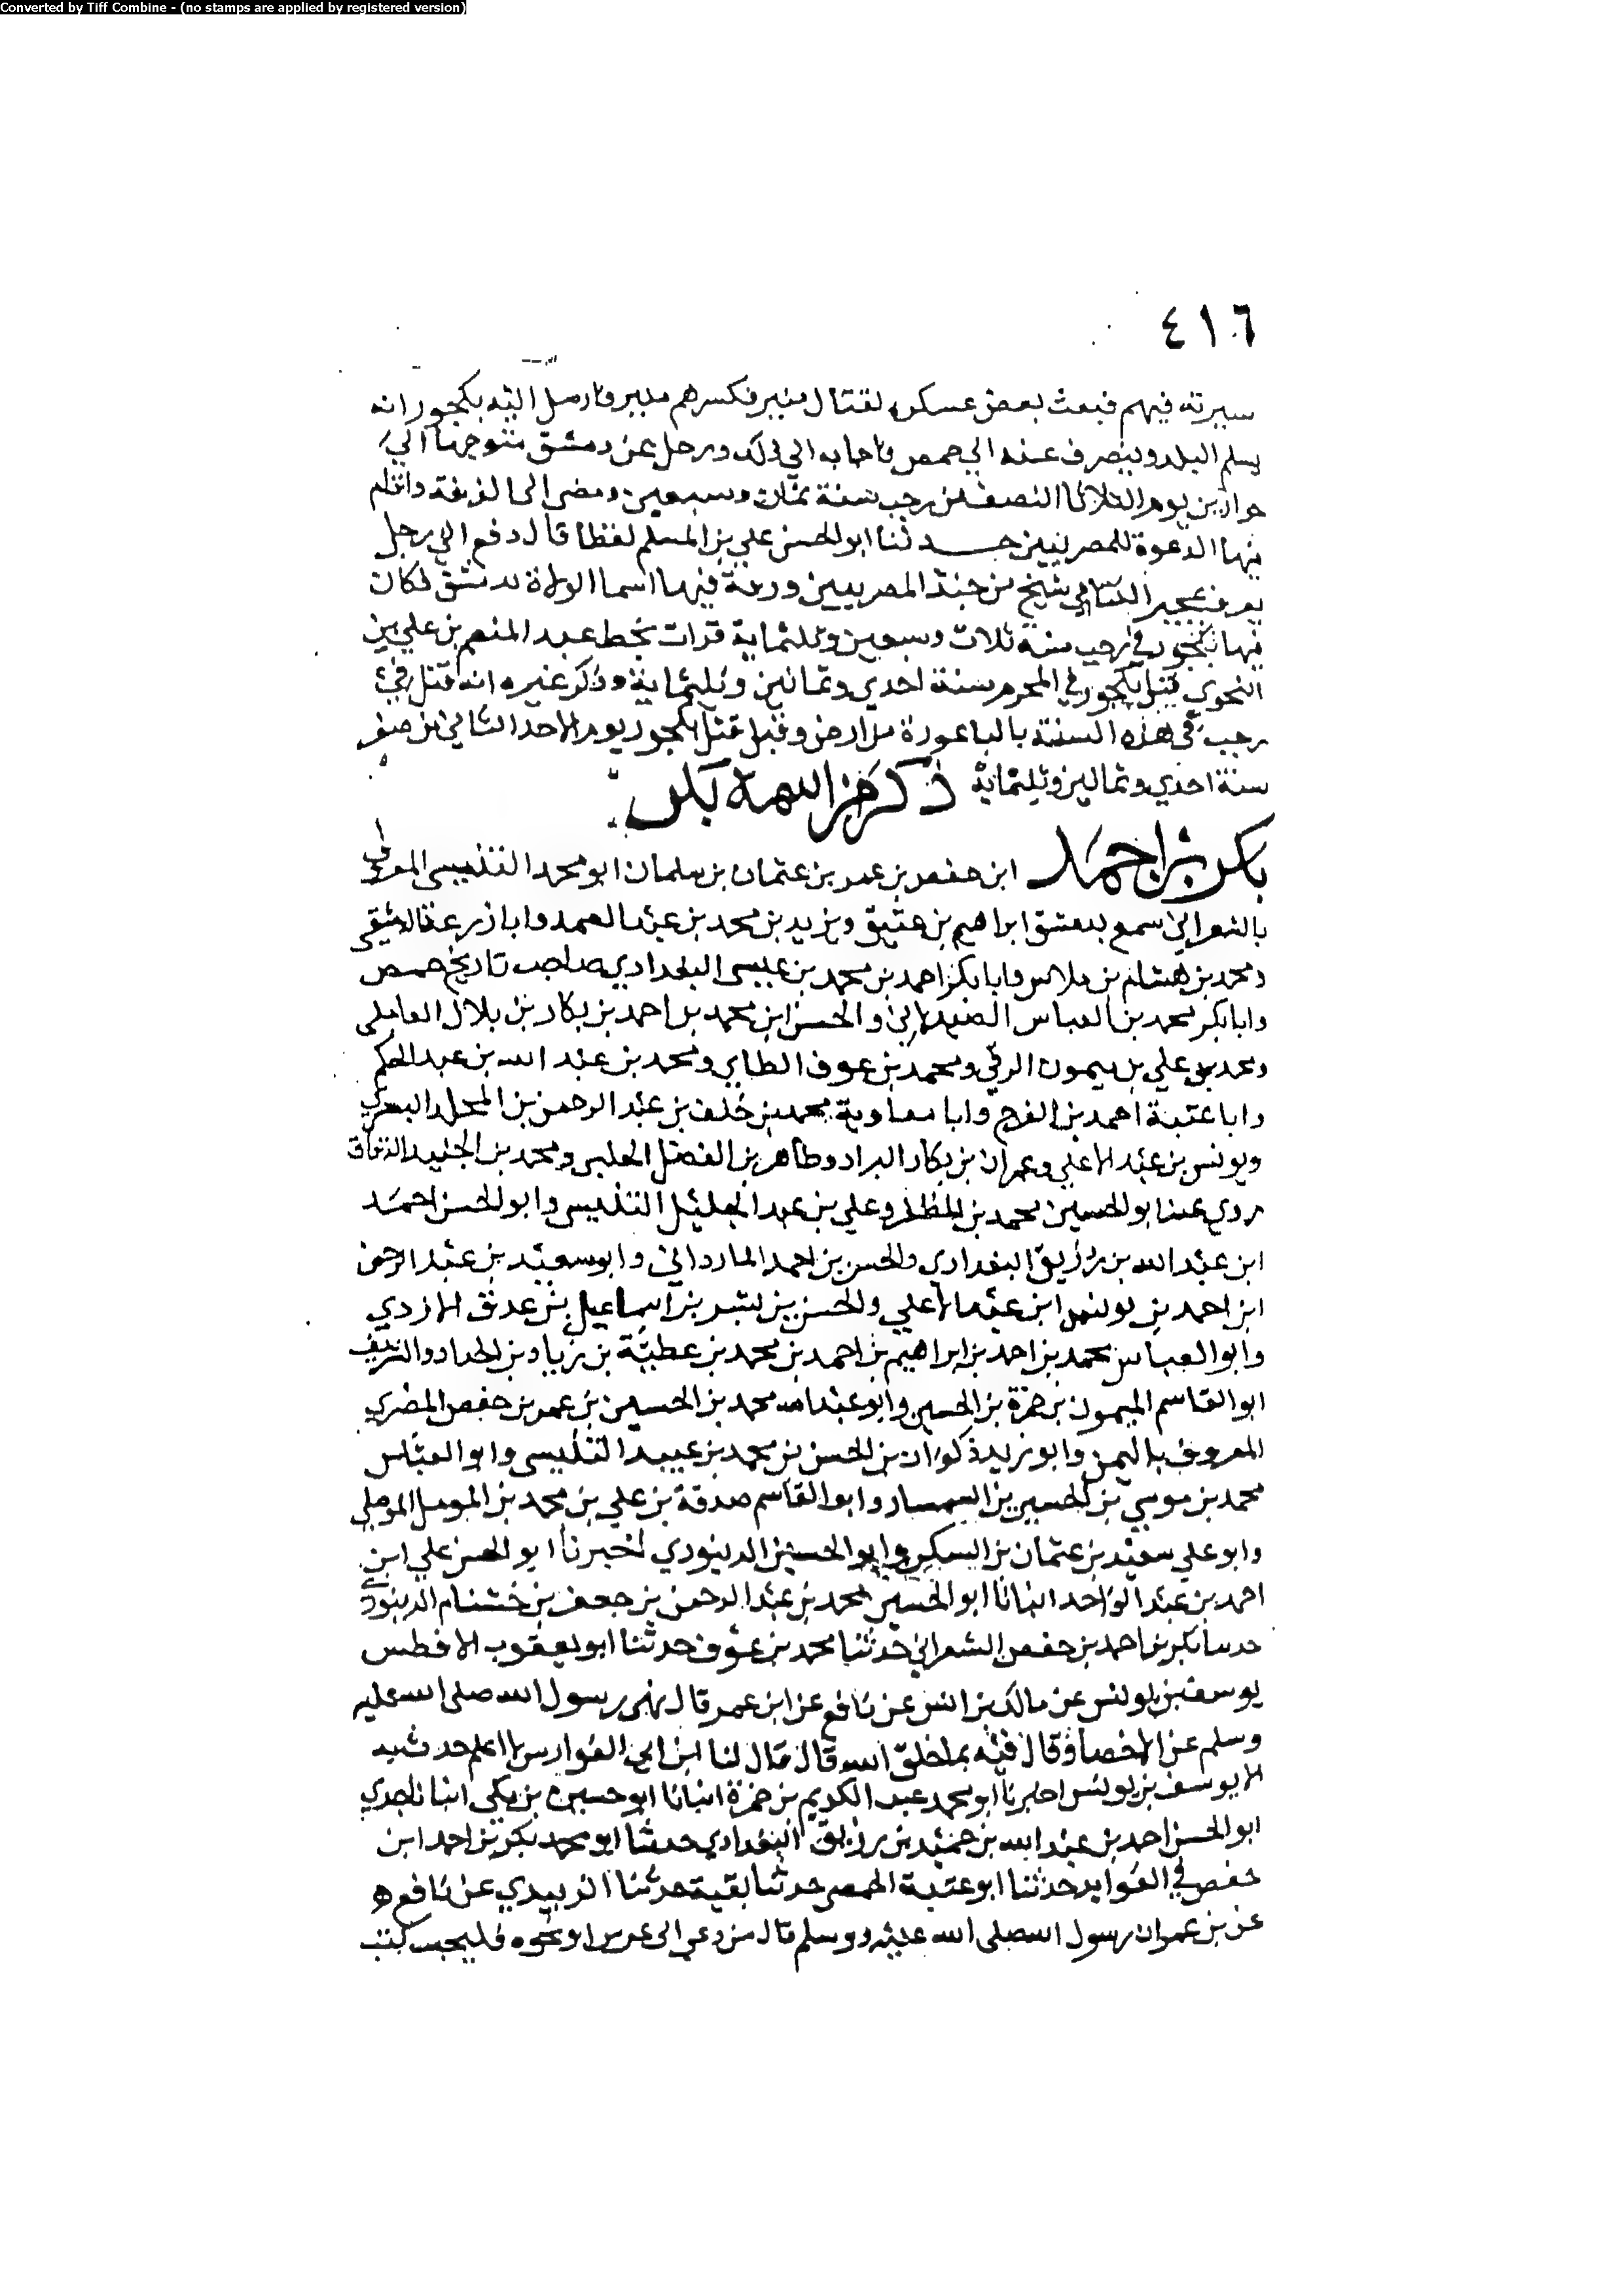 Converted by Tiff Combine - (no stamps are applied by registered version)
٤١٦
سيرته فيهم فبعث بعض عسكره لقتال منير فكسرهم منير فارسل اليه بكجور انه
يسلم البلد وينصرف عنه الي حمص فاجابه الي ذلك ورحل عن دمشق متوجها الي
حوارين يوم الثلاثا النصف من رجب سنة ثمان وسبعين ومضى الى الرقة واقام
فيها الدعوة للمصريين حدثنا ابو الحسن علي بن المسلم لفظا قال دفع الي رجل
يعرف بمجير الكتامي شيخ من جند المصريين ورقة فيها اسما الولاة بدمشق فكان
فيها بكجور في رجب سنة ثلاث وسبعين وثلثماية قرات بخط عبد المنعم بن علي بن
النحوي قتل بكجور في المحرم سنة احدي وثمانين وثلثماية وذكر غيره انه قتل في
رجب في هذه السنة بالباعورة من ارض وقيل قتل بكجور يوم الاحد الثاني من صفر
سنة احدي وثمانين وثلثماية ذكر من اسمه بكر
بكر بن احمد ابن حفص بن عمر بن عثمان بن سلمان ابو محمد التنيسي المعروف
بالشعراني سمع بدمشق ابراهيم بن عتيق ويزيد بن محمد بن عبد الصمد وابا زرعة الدمشقي
ومحمد بن هشام بن ملاس وابا بكر احمد بن محمد بن عيسى البغدادي صاحب تاريخ حمص
وابا بكر محمد بن العباس الصيدلاني والحسن ابن محمد بن احمد بن بكار بن بلال العاملي
ومحمد بن علي بن ميمون الرقي ومحمد بن عوف الطاي ومحمد بن عبد الله بن عبد الحكم
وابا عتبة احمد بن الفرج وابا معاوية محمد بن خلف بن عبد الرحمن بن المحلد البصري
ويونس بن عبد الاعلي وعمران بن بكار البراد وطاهر بن الفضل الحلبي ومحمد بن الجنيد الدقاق
روي عنه ابو الحسين محمد بن المظفر وعلي بن عبد الجليل التنيسي وابو الحسن احمد
ابن عبد الله بن رزيق البغدادي والحسن بن احمد المارداني وابو سعيد بن عبد الرحمن
ابن احمد بن يونس ابن عبد الاعلي والحسن بن بشر بن اسماعيل بن عدق الازدي
وابو العباس محمد بن احمد بن ابراهيم بن احمد بن محمد بن عطية بن زياد بن الحداد والشريف
ابو القاسم الميمون بن حمزة بن الحسين وابو عبد الله محمد بن الحسين بن عمر بن حفص المصري
المعروف باليمن وابو زيد ذكوان بن الحسن بن محمد بن عبيد التنيسي وابو العباس
محمد بن موسي بن الحسين بن السمسار وابو القاسم صدقة بن علي بن محمد بن المومل الموصلي
وابو علي سعيد بن عثمان بن السكن وابو الحسين الدينوري اخبرنا ابو الحسن علي ابن
احمد بن عبد الواحد انبانا ابو الحسين محمد بن عبد الرحمن بن جعفر بن خشنام الدينوري
حدثنا بكر بن احمد بن حفص الشعراني حدثنا محمد بن عوف حدثنا ابو يعقوب الافطس
يوسف بن يونس عن مالك بن انس عن نافع عن ابن عمر قال نهى رسول الله صلى الله عليه
وسلم عن الاخصا وقال فيه بما خلق الله قال قال لنا ابن ابي الفوارس لا اعلم حدث به
الا يوسف بن يونس اخبرنا ابو محمد عبد الكريم بن حمزة انبانا ابو حسين بن مكي انبانا جدي
ابو الحسن احمد بن عبد الله بن حميد بن رزيق البغدادي حدثنا ابو محمد بكر بن احمد ابن
حفص في الفوايد حدثنا ابو عتبة الحمصي حدثنا بقية حدثنا الزبيدي عن نافع
عن بن عمر ان رسول الله صلى الله عليه وسلم قال من دعي الى عرس او نحوه فليجب كتب